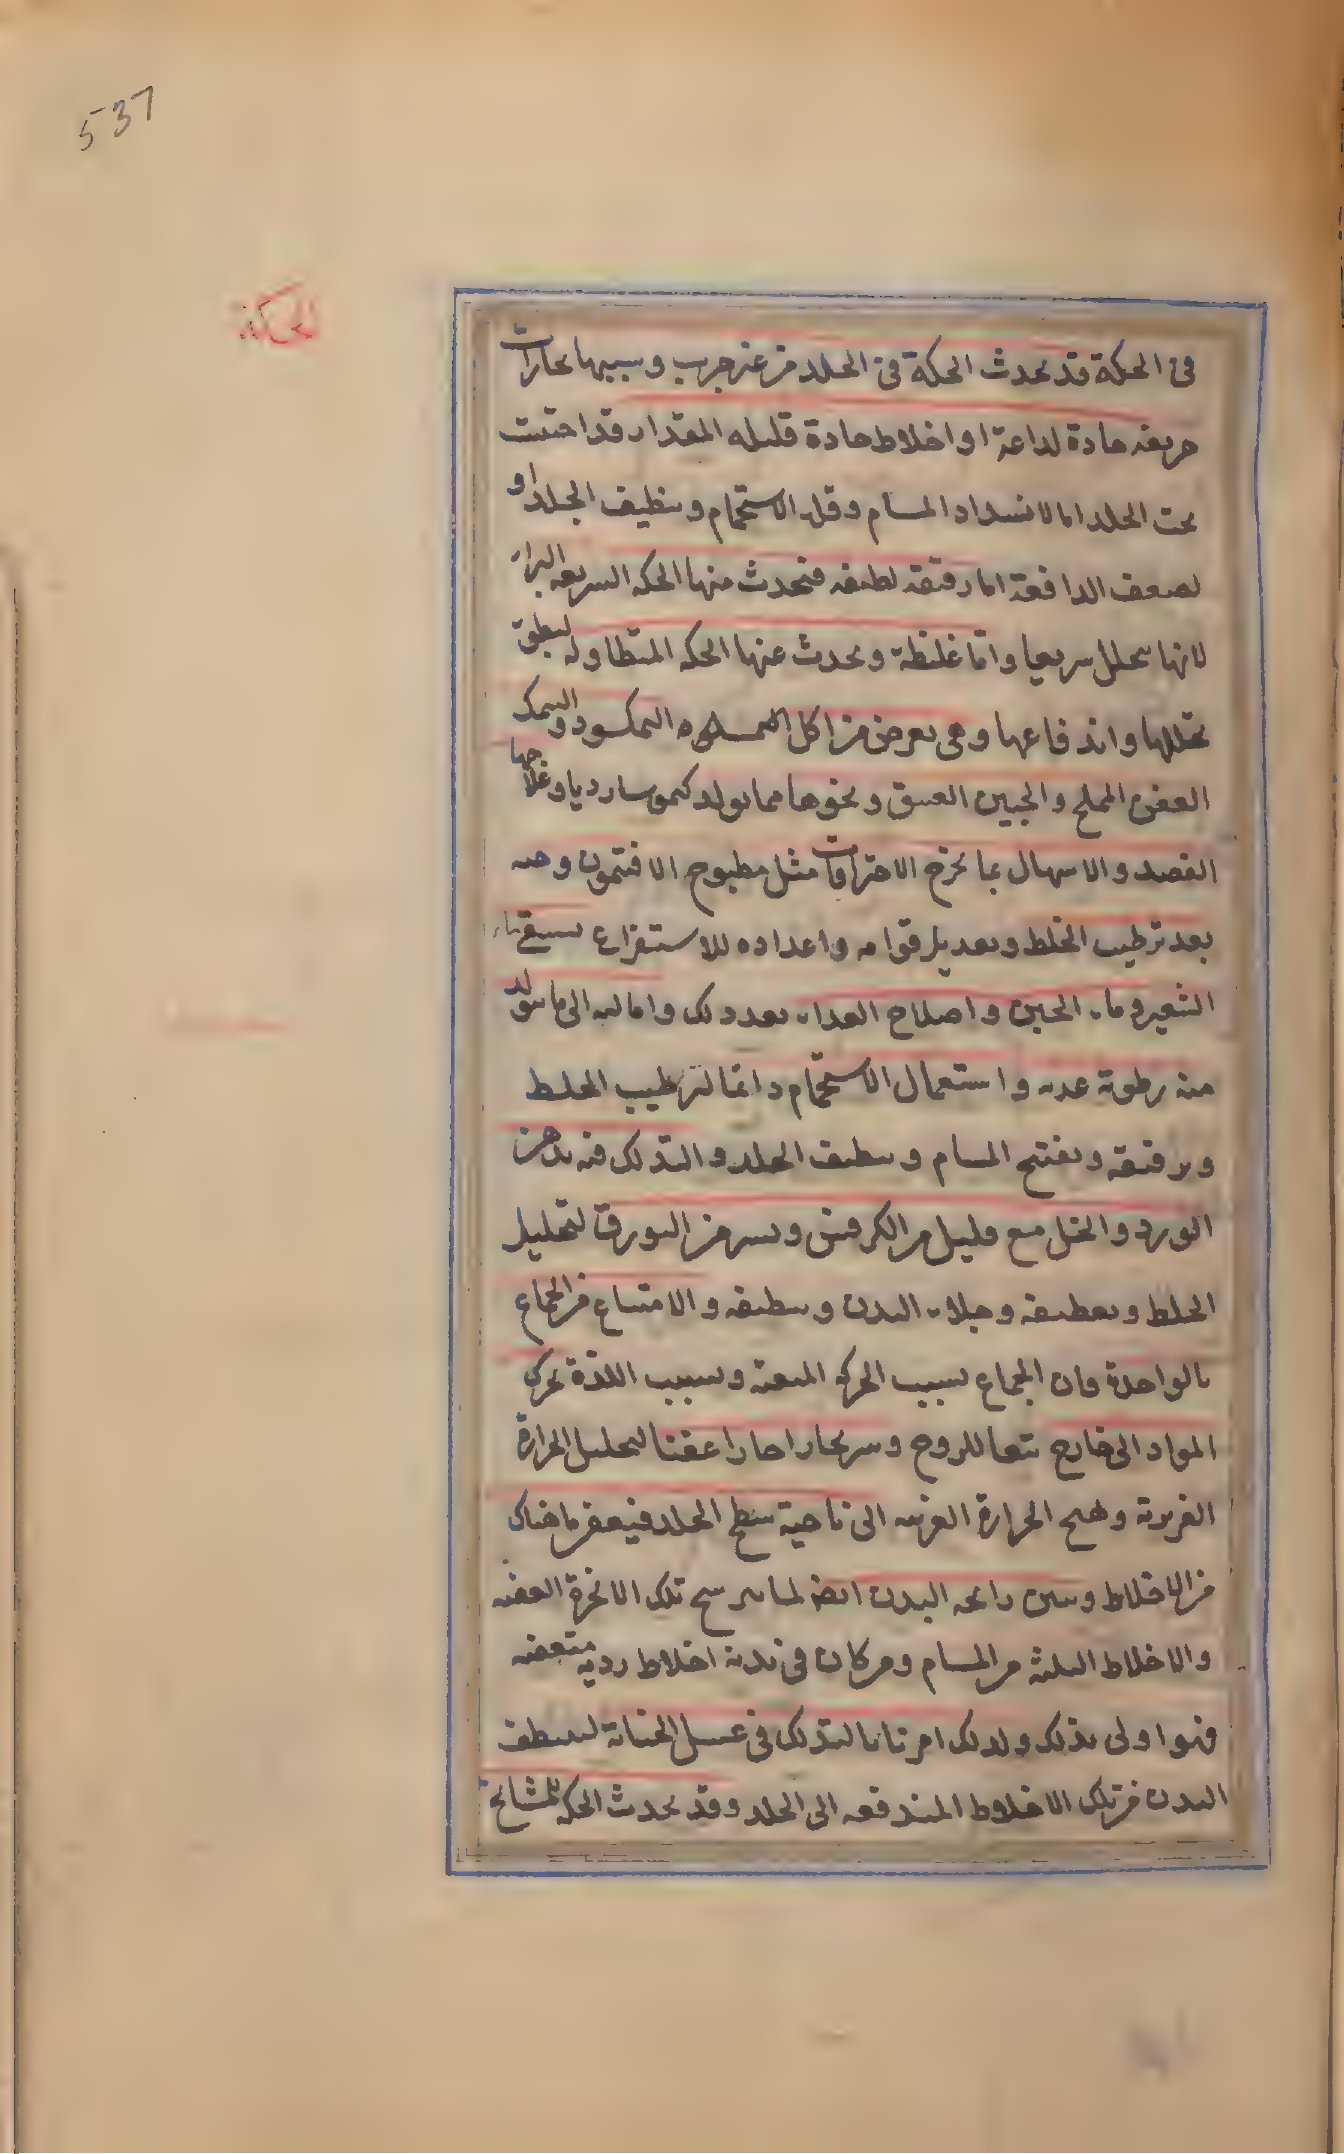 537
الحكة
في الحكة قد يحدث الحكة في الجلد من غير جرب وسببها بخارات
حريفه حادة لداعة او اخلاط حادة قليله المقدار قد احتقنت
تحت الجلد اما لانسداد المسام وقلة الاستحمام وتنظيف الجلد او
لضعف الدافعة اما رقيقه لطيفه فتحدث منها الحكه السريعه البرء
لانها تتحلل سريعا واما غليظة ويحدث عنها الحكه المتطاوله لبطوء
تحللها واندفاعها وهي يعرض من اكل النمكسود والسمك
العفن المملح والجبن العتيق ونحوها مما يولد كيموسا رديا وعلاجها
الفصد والاسهال بما يخرج الاحتراقات مثل مطبوخ الافتيمون وحبه
بعد ترطيب الخلط وتعديل قوامه واعداده للاستفراغ بسقي ماء
الشعير وماء الجبن واصلاح الغداء بعد دلك وامالته الى ما يتولد
منه رطوبة عدبه واستعمال الاستحمام دائما لترطيب الخلط
وترقيقه وتفتيح المسام وتنظيف الجلد والتدلك فيه بدهن
الورد والخل مع قليل من الكرفس ويسير من البورق لتحليل
الخلط وتقطيعه وجلاء البدن وتنظيفه والامتناع من الجماع
بالواحدة فان الجماع بسبب الحركه المتعبة وبسبب اللذة يحرك
المواد الى خارج تبعا للروح ويثير بخارا حارا عفنا لتحليل الحرارة
الغريزية وتهيج الحرارة الغريبه الى ناحية سطح الجلد فيعفن ما هناك
من الاخلاط وينتن رائحه البدن ايضا لما يترشح تلك الابخرة العفنه
والاخلاط الثلثة من المسام ومن كان في بدنه اخلاط رديه متعفنه
فهو اولى بذلك ولدلك امرنا بالتدلك في غسل الجنابة لتنظيف
البدن من تلك الاخلاط المندفعه الى الجلد وقد يحدث الحكه للمشايخ